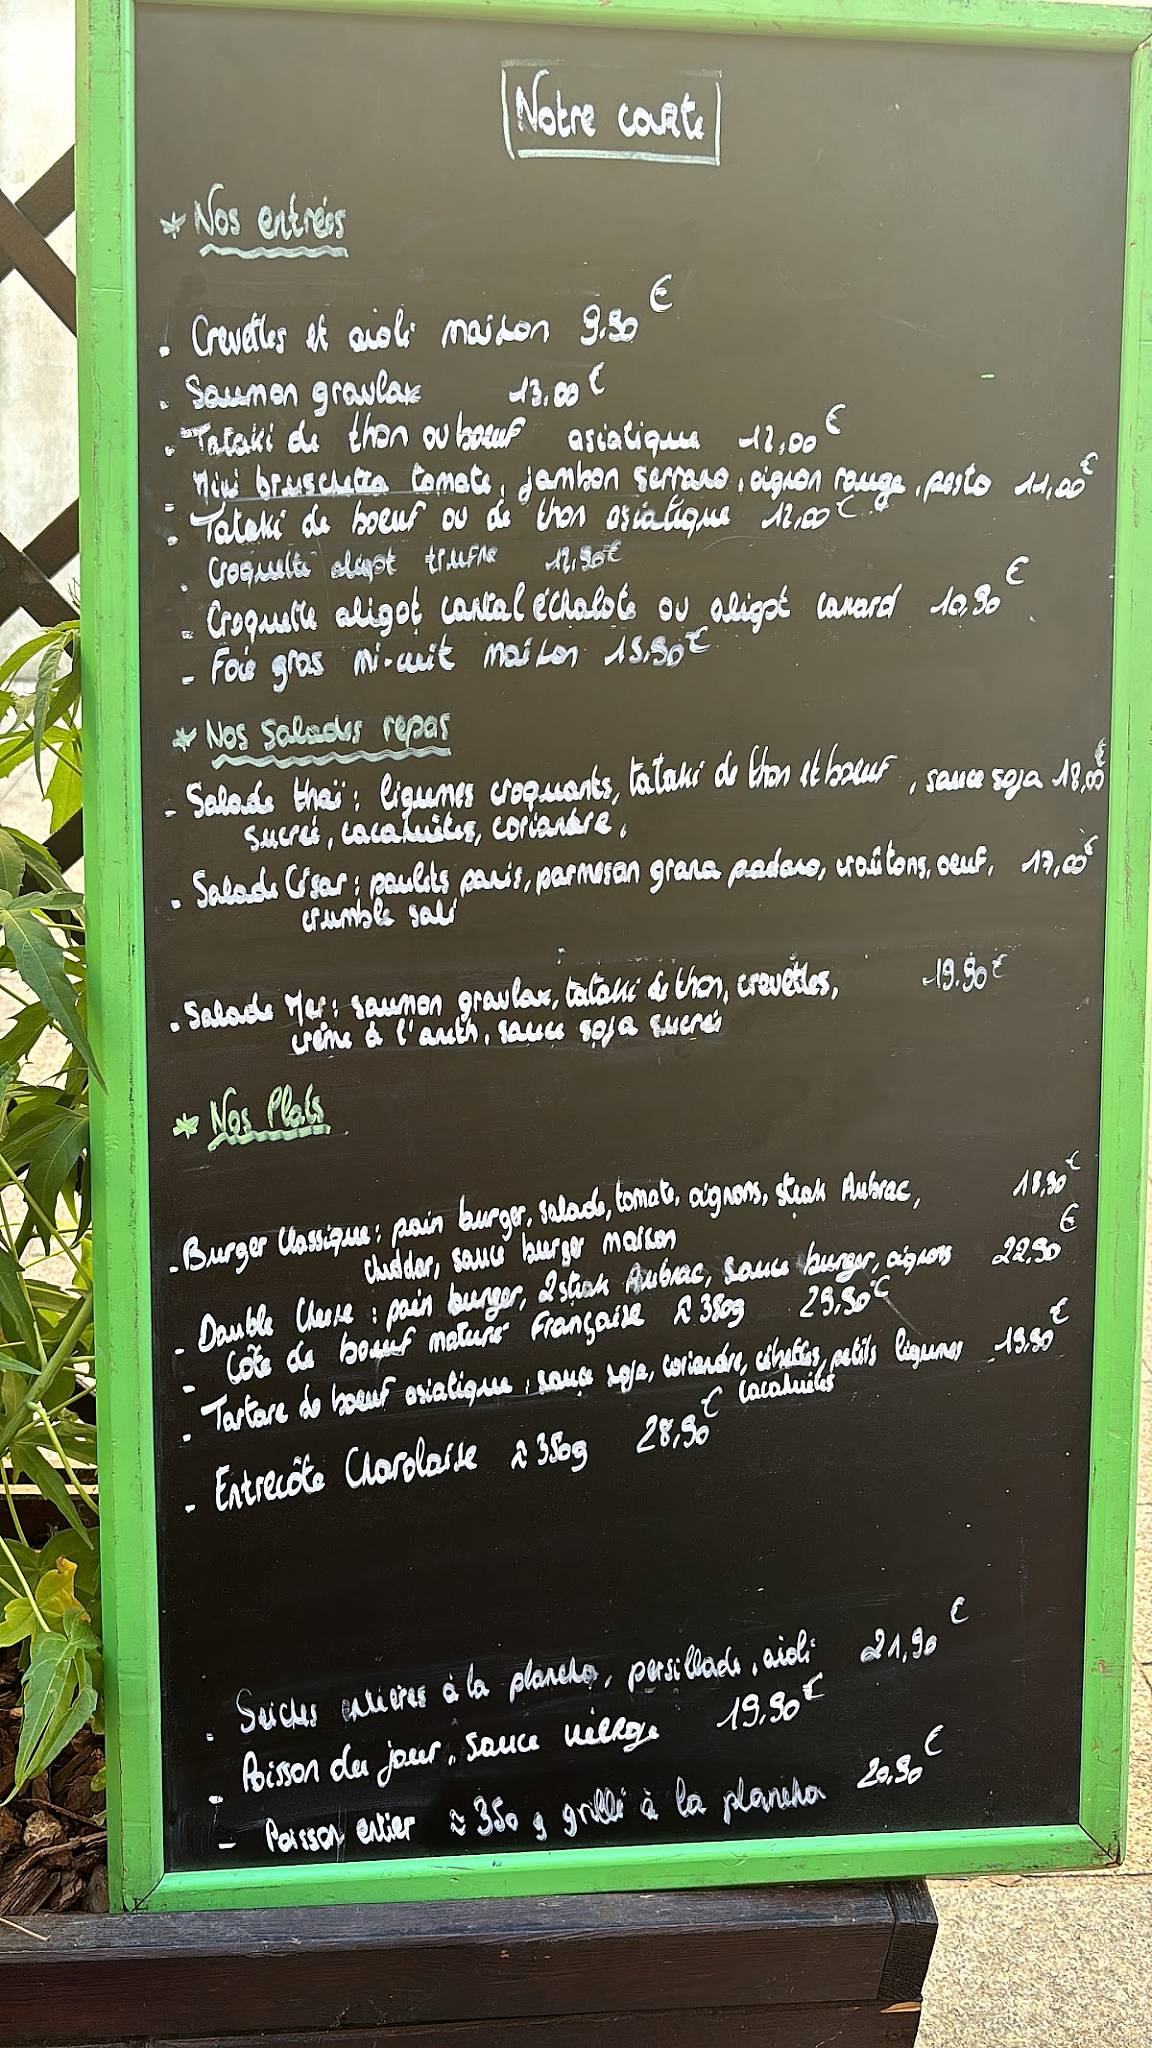 Notre carte
* Nos entrées
- Crevettes et aioli maison 9.90 €
- Saumon gravlax 13.00 €
- Tataki de thon ou boeuf asiatique 12,00 €
- Mini bruschetta tomate, jambon serrano, oignon rouge, pesto 11,00 €
- Tataki de boeuf ou de thon asiatique 12,00 €
- Croquette aligot truffe 12,90 €
- Croquette aligot cantal échalote ou aligot canard 10,90 €
- Foie gras mi-cuit maison 15.90 €
* Nos Salades repas
- Salade thaï : légumes croquants, tataki de thon et boeuf, sauce soja 18,00 €
sucrée, cacahuètes, coriandre,
- Salade César : poulets panés, parmesan grana padano, croûtons, oeuf, 17,00 €
crumble salé
- Salade Mer : saumon gravlax, tataki de thon, crevettes, 19.90 €
crème à l'aneth, sauce soja sucrée
* Nos Plats
- Burger Classique : pain burger, salade, tomate, oignons, steak Aubrac, 18,90 €
cheddar, sauce burger maison
- Double Cheese : pain burger, 2 steak Aubrac, sauce burger, oignons 22,90 €
- Côte de boeuf maturé Française ≈ 380g 29,90 €
- Tartare de boeuf asiatique, sauce soja, coriandre, cibettes, petits légumes 19.90 €
cacahuètes
- Entrecôte Charolaise ≈ 350g 28,90 €
- Seiches entières à la plancha, persillade, aioli 21,90 €
- Poisson du jour, sauce vierge 19.90 €
- Poisson entier ≈ 350 g grillé à la plancha 20.90 €